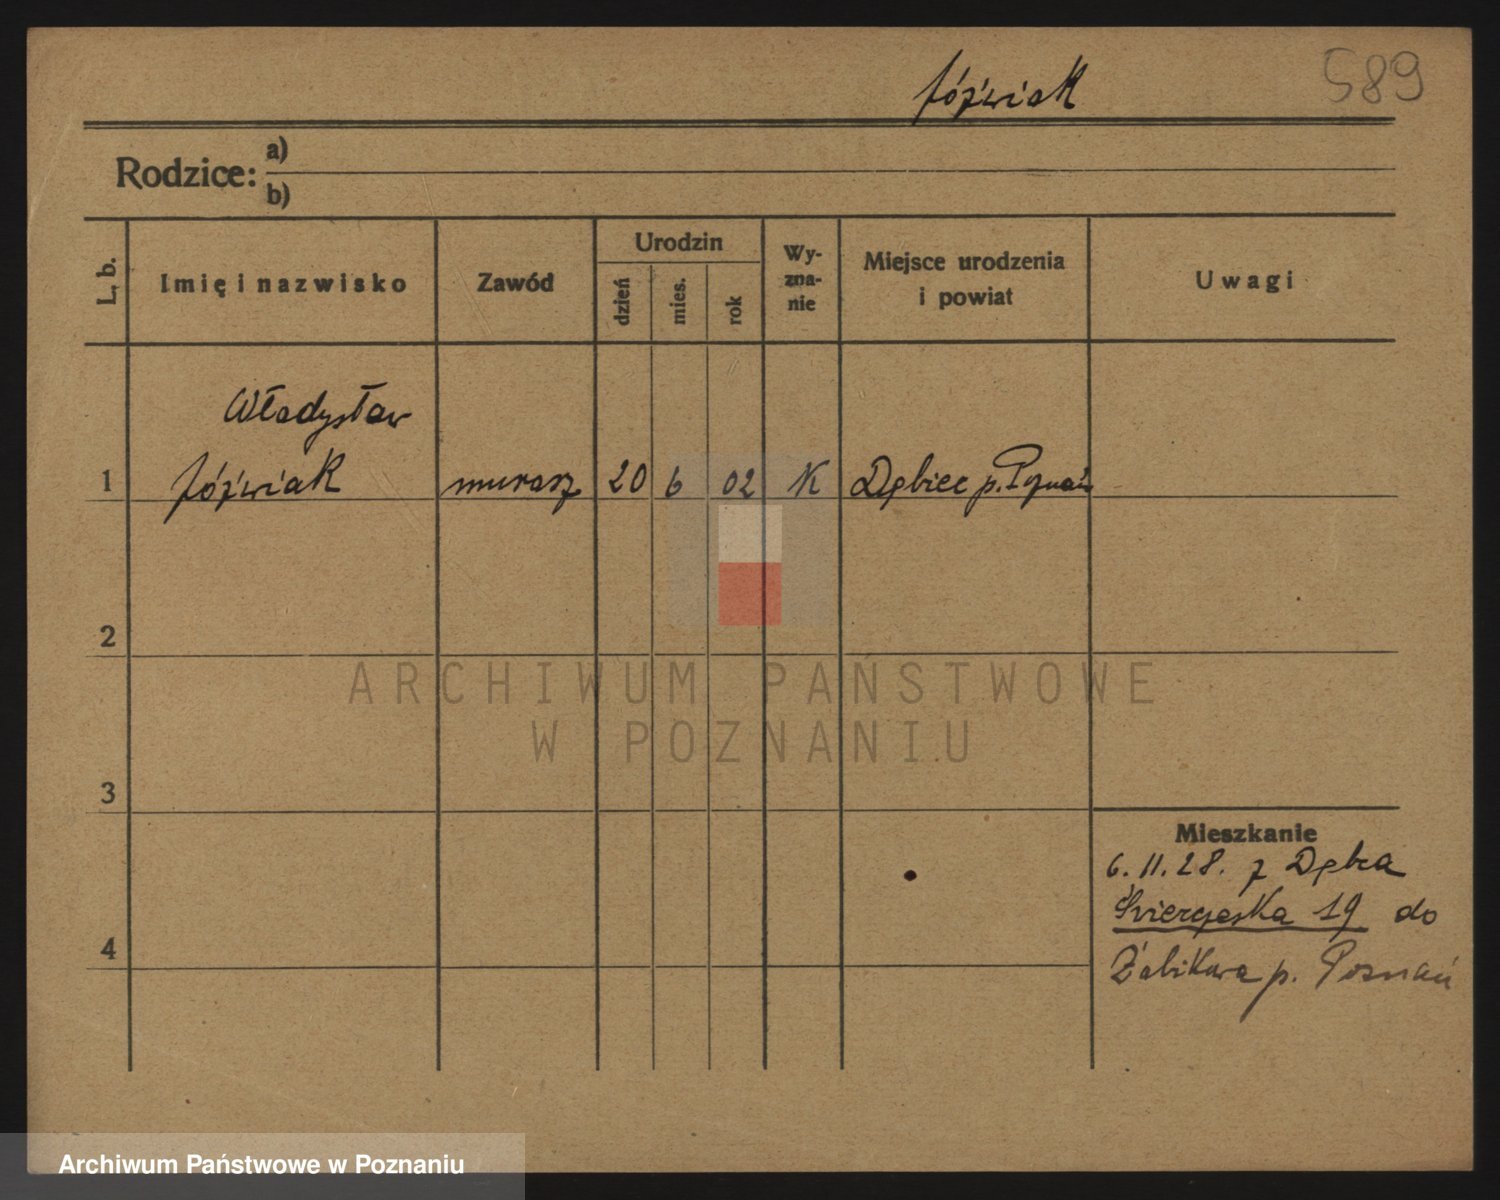 Jóźwiak 589
Rodzice: a)
b)
L. b. Imię i nazwisko Zawód Urodzin dzień mies. rok Wy-zna-nie Miejsce urodzenia i powiat Uwagi
Władysław
1 Jóźwiak murarz 20 6 02 K Dębiec p. Poznań
2
ARCHIWUM PAŃSTWOWE
W POZNANIU
3
Mieszkanie
6.11.28. z Dębca
19 do
4
Żabikowa p. Poznań
Archiwum Państwowe w Poznaniu